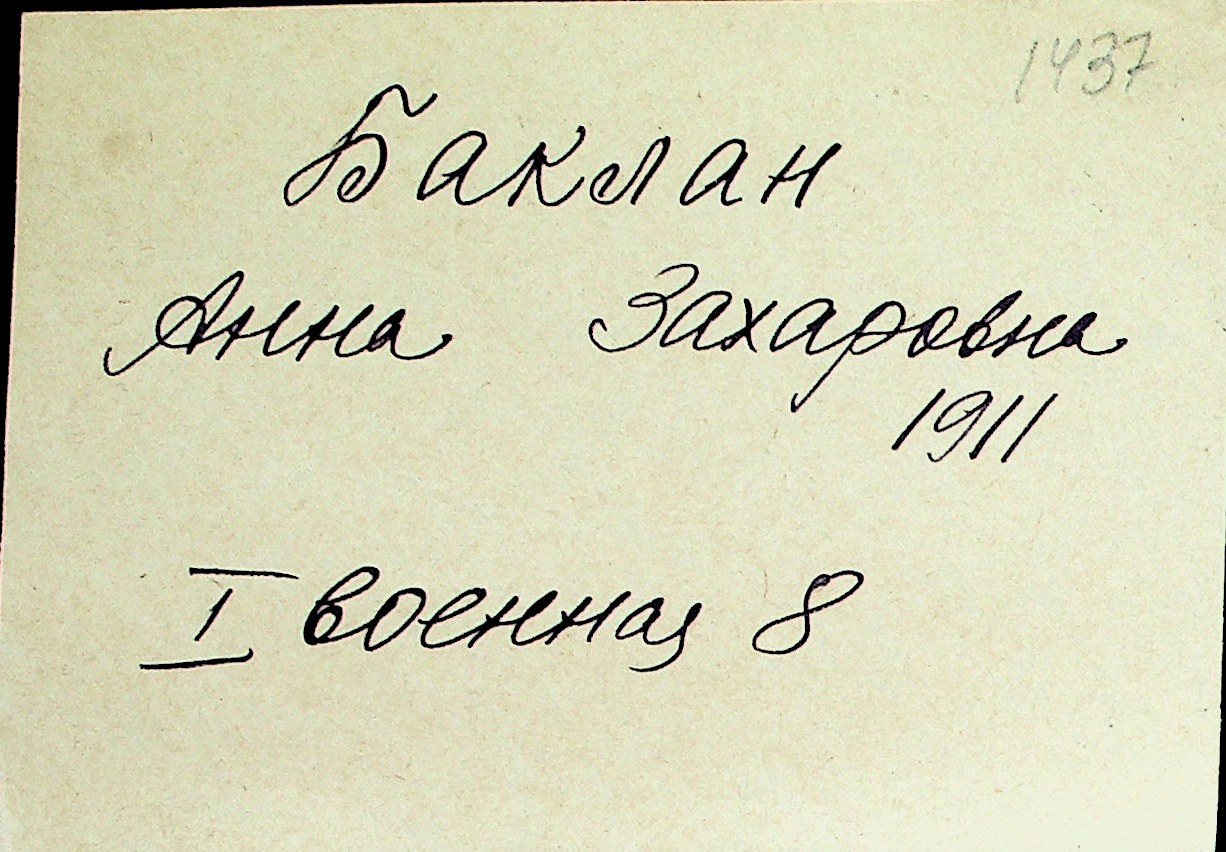 1437
Баклан
Анна Захаровна
1911
I военная 8